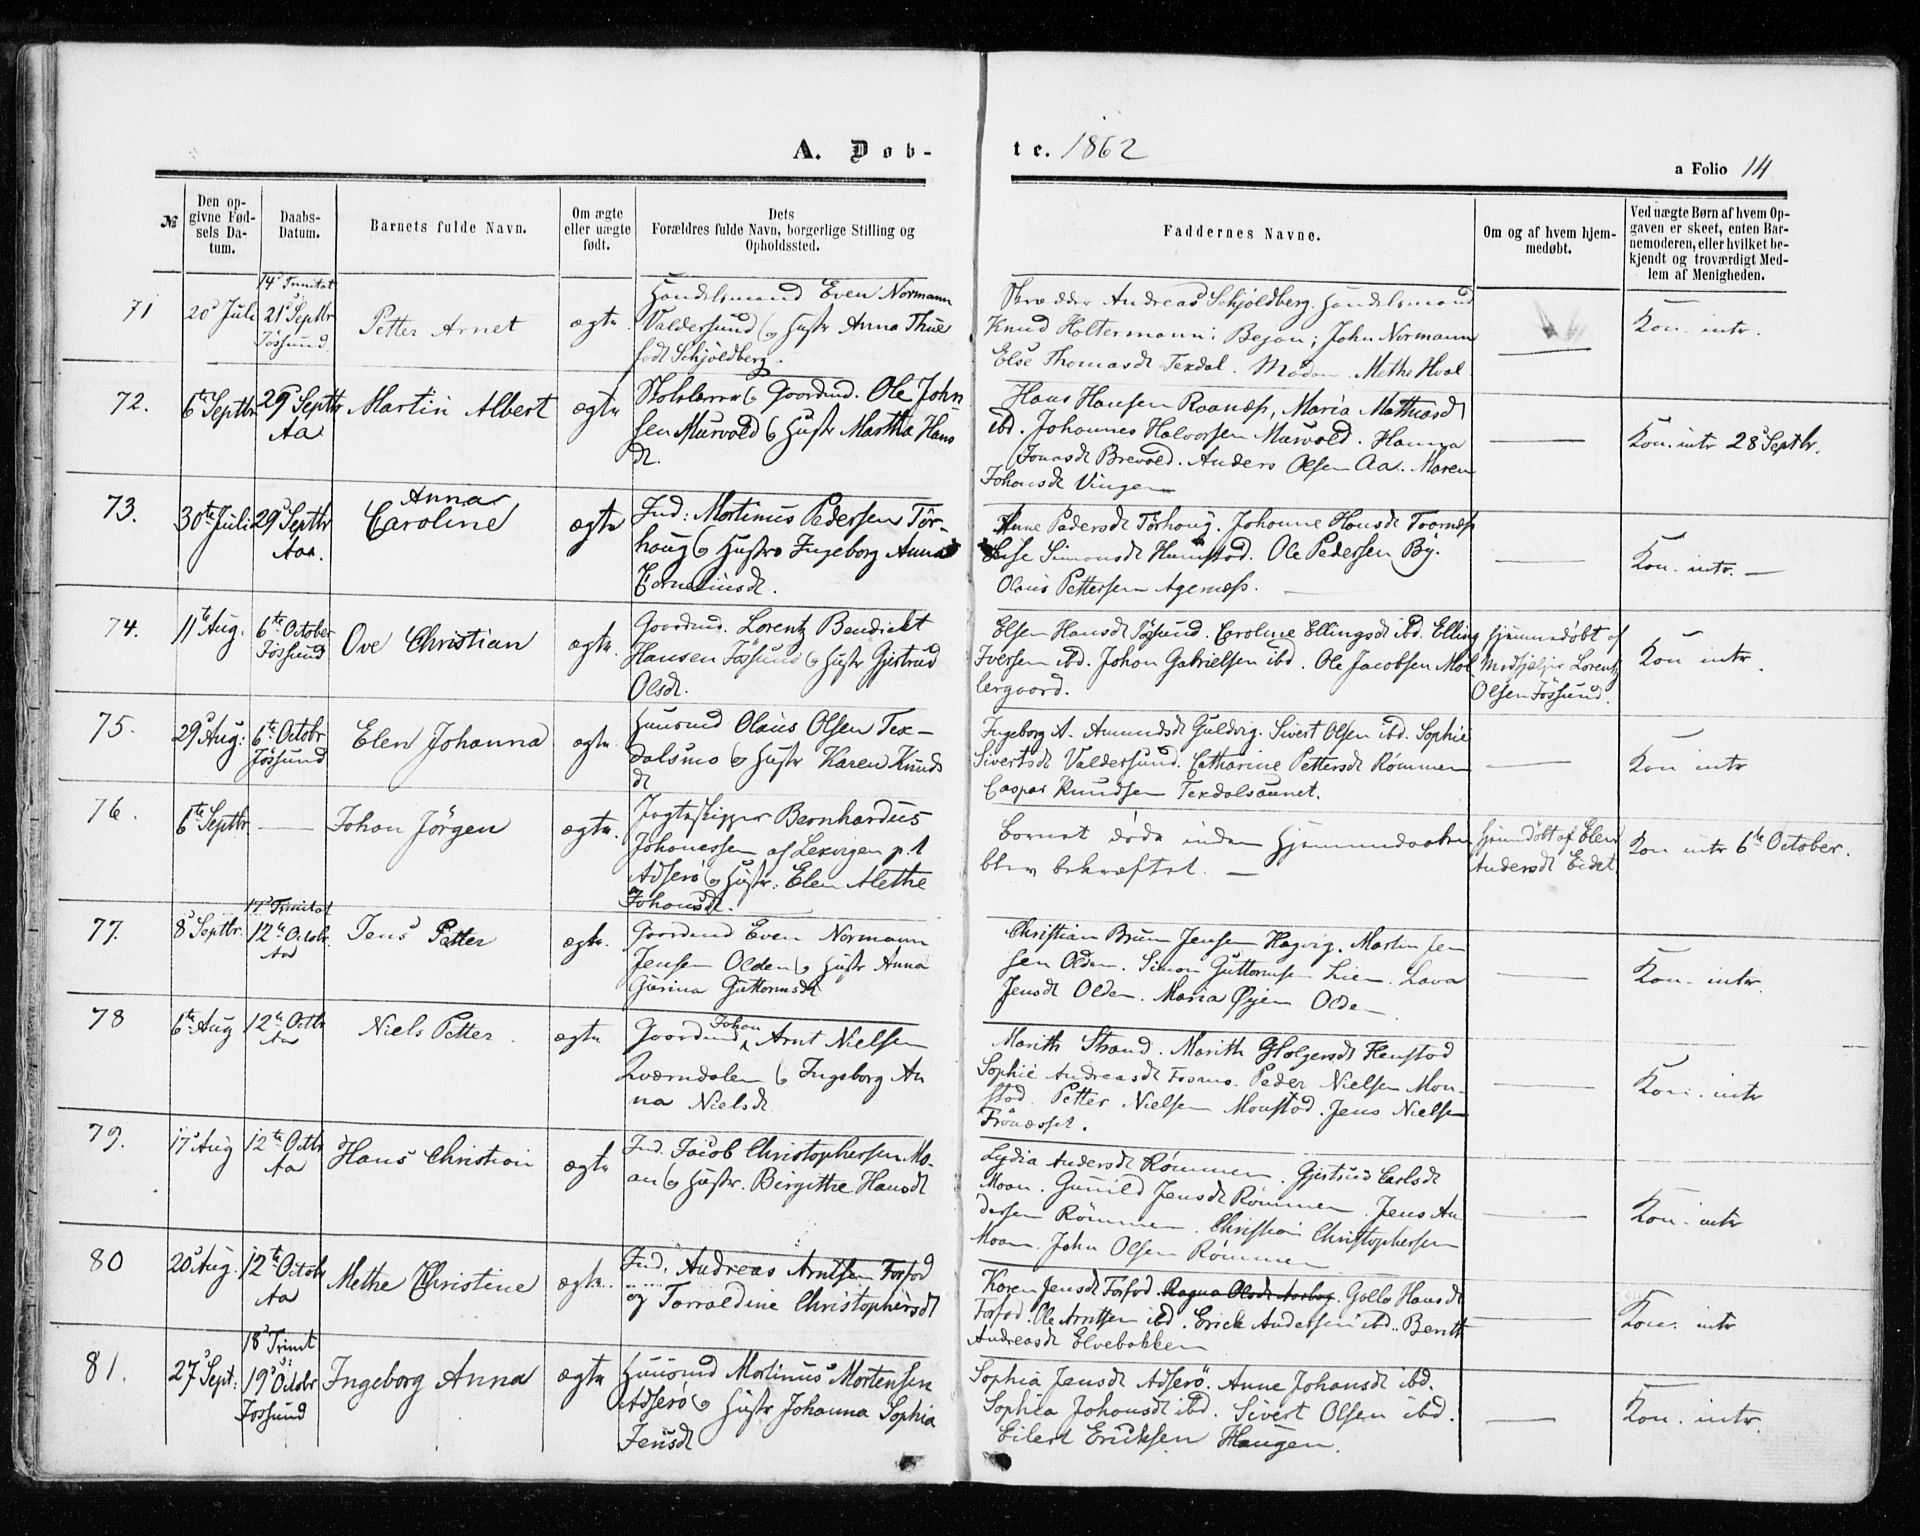 A. Døb-
te. 1862
a Folio 14
№
Den op-
givne Fød-
sels Da-
tum.
Daabs-
Datum.
Barnets fulde Navn.
Om ægte
eller uægte
født.
Dets
Forældres fulde Navn, borgerlige Stilling og
Opholdssted.
Faddernes Navne.
Om og af hvem hjem-
medøbt.
Ved uægte Børn af hvem Op-
gaven er skeet, enten Bar-
nemoderen, eller hvilket be-
kjendt og troværdigt Med-
lem af Menigheden.
71
20s Juli
14s Trinitat
21s Septbr
Jössund
Petter Arnet
ægte
Handelsmand Even Normann
Valdersund og Hustr Anna Thue
født Schjöldberg.
Skrædder Andreas Schjöldberg. Handelsmand
Knud Holtermann: Bejan; John Normann
Else Thomasdt Texdal. Madam Methe Hval
Kon. intr.
72.
6te Septbr
29s Septbr
Aa
Martin Albert
ægte
Skolelærer og Gaardmd. Ole John
sen Murvold og Hustr Martha Hans
dt.
Hans Hansen Raanæss, Maria Mathiasdt
ibd. Johannes Halvorsen Murvold. Hanna
Jonasdt Brevold. Anders Olsen Aa. Maren
Johansdt Vingen
Kon. intr 28s Septbr.
73.
30te Juli
29s Septbr
Aa.
Anna
Caroline
ægte
Ind: Mortinus Pedersen Tör-
houg og Hustru Ingeborg Anna
Corneliusdt.
Anne Pedersdt Törhoug. Johanne Hansdt Traanæss
Else Simonsdt Hunstad. Ole Pedersen By.
Olaus Pettersen Agernæss.
Kon. intr. —
74.
11te Aug.
6te October
Jössund
Ove Christian
ægte.
Gaardmd. Lorentz Bendickt
Hansen Jössund og Hustr Gjertrud
Olsdt.
Elsen Hansdt Jössund. Caroline Ellingsdt ibd. Elling
Iversen ibd. Johan Gabrielsen ibd. Ole Jacobsen Mol
lergaard.
Hjemmedøbt af
Medhjælper Lorentz
Olsen Jössund.
Kon intr.
75.
29s Aug:
6te Octobr
Jössund
Elen Johanna
ægte.
Huusmd Olaus Olsen Tex-
dalsmo og Hustr Karen Knuds
dt
Ingeborg A. Amundsdt Guldvig. Sivert Olsen ibd. Sophie
Sivertsdt Valdersund. Catharine Pettersdt Rømmen
Caspar Knudsen Texdalsaunet.
Kon intr
76.
6te Septbr
Johan Jörgen
ægte.
Jagteskipper Bernhardus
Johanessen af Lexvigen p.t
Adserö og Hustr: Elen Alethe
Johansdt.
Barnet døde inden Hjemmedaaben
blev bekræftet. —
Hjemdöbt af Elen
Andersdt Eidet
Kon intr 6te October.
77.
8s Septbr.
17s Trinitat
12te Octobr.
Aa
Jens Petter
ægte.
Gaardmd Even Normann
Jensen Olden og Hustr Anna
Gurina Guttormsdt
Christian Brun Jensen Hagvig. Martin Jen
sen Olden. Simon Guttormsen Lien. Lava
Jensdt Olden. Maria Øyen Olden
Kon. intr.
78
6te Aug
12te Octbr
Aa
Niels Petter.
ægte
Johan
Gaardmd Arnt Nielsen
Qværndalen og Ingeborg An
na Nielsdt
Marith Strand. Marith Holgersdt Hunstad
Sophie Andreasdt Fosmo. Peder Nielsen Mon-
stad. Petter Nielsen Monstad. Jens Nielsen
Frönæsset.
Kon. intr
79.
17s Aug
12te Octbr
Aa
Hans Christian
ægte
Ind. Jacob Christophersen Mo-
an og Hustr. Birgitthe Hansdt
Lydia Andersdt Rømmen. Gjertrud Carlsdt
Moan. Gunild Jensdt Rømmen. Jens An
dersen Römmen. Christian Christophersen
Moan. John Olsen Römmen
Kon. intr
80
20s Aug.
12te Octobr
Aa
Methe Christine
ægte.
Ind. Andreas Arntsen Forfod
og Torraldine Christophersdt
Karen Jensdt Forfod. Ragna Olsdt Aasbog. Golla Hansdt
Forfod. Ole Arntsen ibd. Erick Andersen ibd.. Beritt
Andreasdt Elvebakken
Kon. intr
81.
27s Sept:
18s Trinit
19s Octobr
Jossund
Ingeborg Anna
ægte
Huusmd Mortinus Mortensen
Adserö og Hustr Johanna Sophia
Jensdt
Sophia Jensdt Adserö. Anne Johansdt ibd.
Sophia Johansdt ibd. Sivert Olsen ibd.
Eilert Ericksen Haugen.
Kon. intr